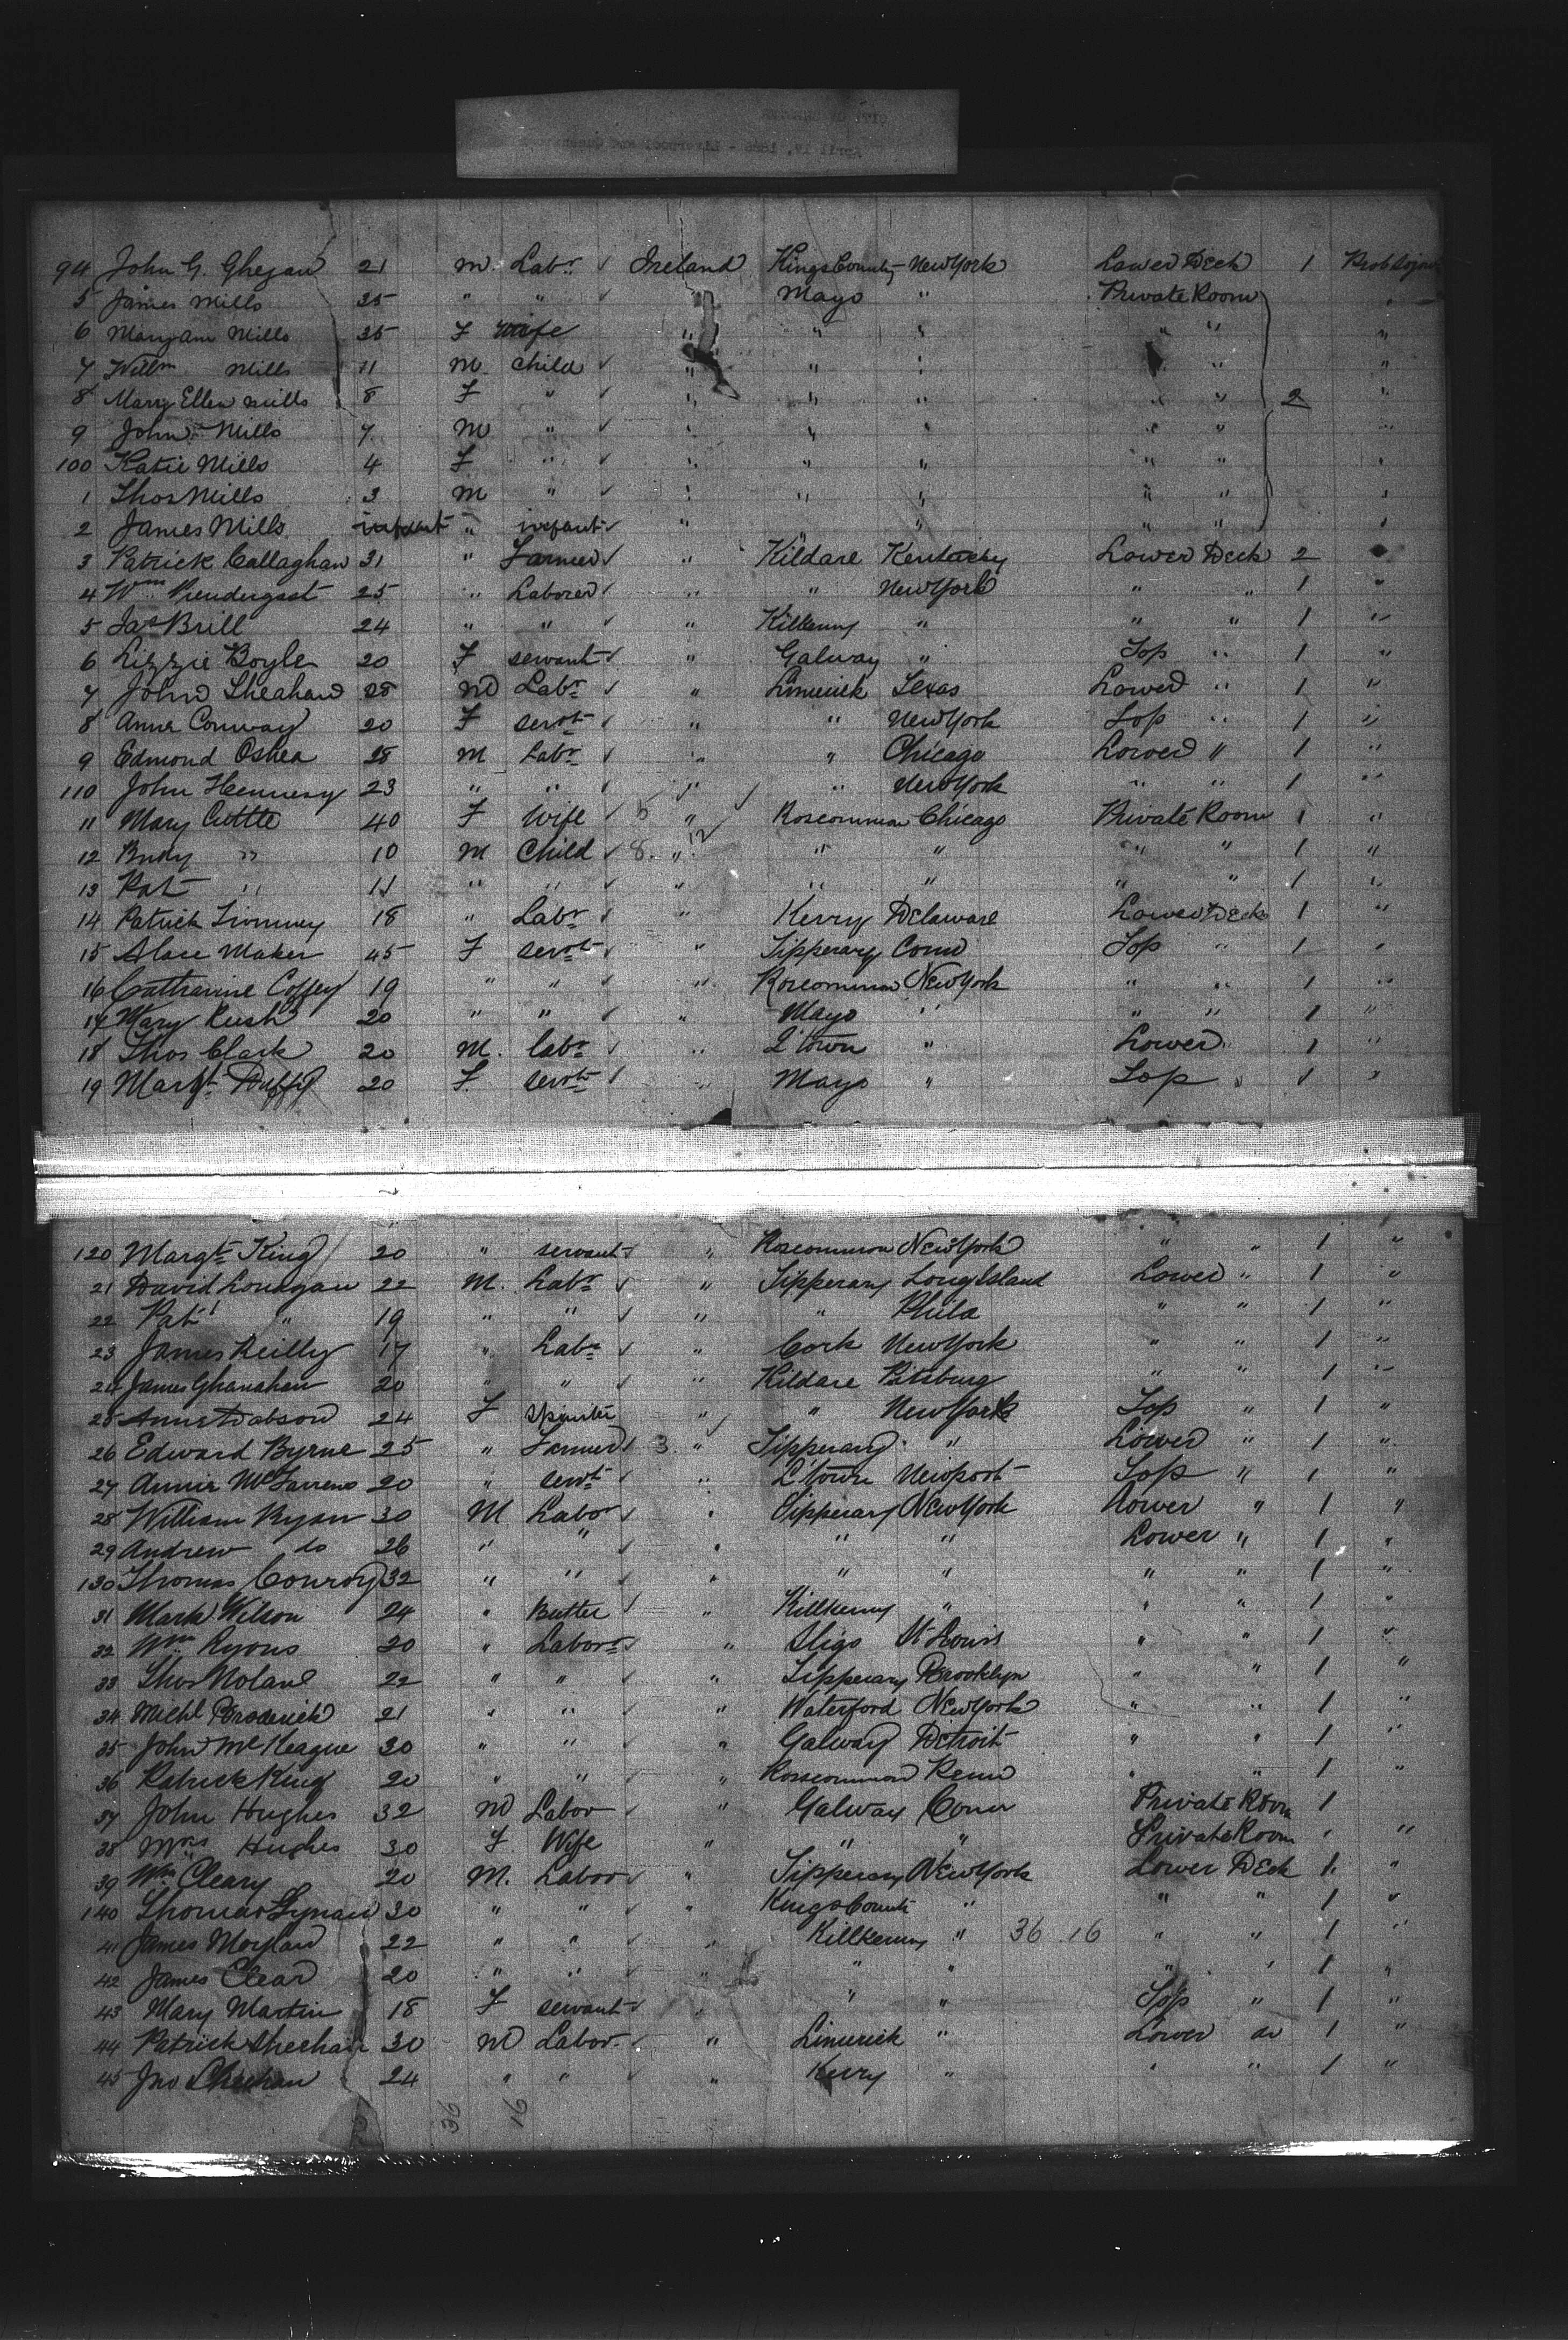 94 John G. Ghegan 21 m. Labr. ✓ Ireland Kings County New York Lower Deck 1
5 James Mills 35 " " ✓ " Mayo " Private Room "
6 Mary Ann Mills 35 F wife " " " " " "
7 Willm Mills 11 M child ✓ " " " " " "
8 Mary Ellen Mills 8 F " ✓ " " " " " 2 "
9 John Mills 7 M " ✓ " " " " " "
100 Katie Mills 4 F " ✓ " " " " " "
1 Thos Mills 3 M " ✓ " " " " " "
2 James Mills infant " infant ✓ " " " " "
3 Patrick Callaghan 31 " Farmer ✓ " Kildare Kentucky Lower Deck 2 "
4 Wm Prendergast 25 " Laborer ✓ " " New York " " 1 "
5 Jas Brill 24 " " ✓ " Kilkenny " " " 1 "
6 Lizzie Boyle 20 F servant ✓ " Galway " Top " 1 "
7 John Sheahan 28 M Labr ✓ " Limerick Texas Lower " 1 "
8 Anne Conway 20 F servt ✓ " " New York Top " 1 "
9 Edmond Oshea 28 M Labr ✓ " " Chicago Lower " 1 "
110 John Hennesy 23 " " ✓ " " New York " " 1 "
11 Mary Cuttle 40 F Wife ✓ " Roscommon Chicago Private Room 1 "
12 " 10 M Child ✓ 8 " " " " " 1 "
13 Pat " 11 " " ✓ " " " " " 1 "
14 Patrick 18 " Labr ✓ " Kerry Delaware Lower Deck 1 "
15 Alace Maher 45 F servt ✓ " Tipperary Conn Top " 1 "
16 Catharine Coffey 19 " " ✓ " Roscommon New York " " 1 "
17 Mary Rush 20 " " ✓ " Mayo " " " 1 "
18 Thos Clark 20 M. labr ✓ " Q'town " Lower " 1 "
19 Margt Duffy 20 F. servt ✓ " Mayo " Top " 1 "
120 Margt King 20 " servant ✓ " Roscommon New York " " 1 "
21 David Lonagan 22 M. Labr ✓ " Tipperary Long Island Lower " 1 "
22 Pat " 19 " " ✓ " " Phila " " 1 "
23 James Reilly 17 " Labr ✓ " Cork New York " " 1 "
24 James Ghanahan 20 " " ✓ " Kildare Pitsburg " " 1 "
25 Anne Dabson 24 F Spinster " " New York Top " 1 "
26 Edward Byrne 25 " Farmer ✓ 3 " Tipperary " Lower " 1 "
27 Annie 20 " servt ✓ " Newport Top " 1 "
28 William Ryan 30 M Labor ✓ " Tipperary New York Lower " 1 "
29 Andrew do 26 " " ✓ " " " Lower " 1 "
130 Thomas Conroy 32 " " ✓ " " " " " 1 "
31 Mark Wilson 24 " Butler ✓ " Killkenny " " " 1 "
32 Wm Lyons 20 " Labor ✓ " Sligo St Louis " " 1 "
33 Thos Nolane 22 " " ✓ " Tipperary Brooklyn " " 1 "
34 Michl Broderick 21 " " ✓ " Waterford New York " " 1 "
35 John McKeague 30 " " ✓ " Galway Detroit " " 1 "
36 Patrick King 20 " " ✓ " Roscommon Penn " " 1 "
37 John Hughes 32 M Labor ✓ " Galway Conn Private Room 1
38 Mrs Hughes 30 F. Wife " " " Private Room " "
39 Wm Cleary 20 M. Labor ✓ " Tipperary New York Lower Deck 1 "
140 Thomas Lynan 30 " " ✓ " Kings County " " " 1 "
41 James Moylan 22 " " ✓ " Killkenny " 36 16 " " 1 "
42 James Clear 20 " " ✓ " " " " " 1 "
43 Mary Martin 18 F servant ✓ " " " Top " 1 "
44 Patrick Sheehan 30 M Labor ✓ " Limerick " Lower do 1 "
45 Jno Sheehan 24 " " ✓ " Kerry " " " 1 "
36 16